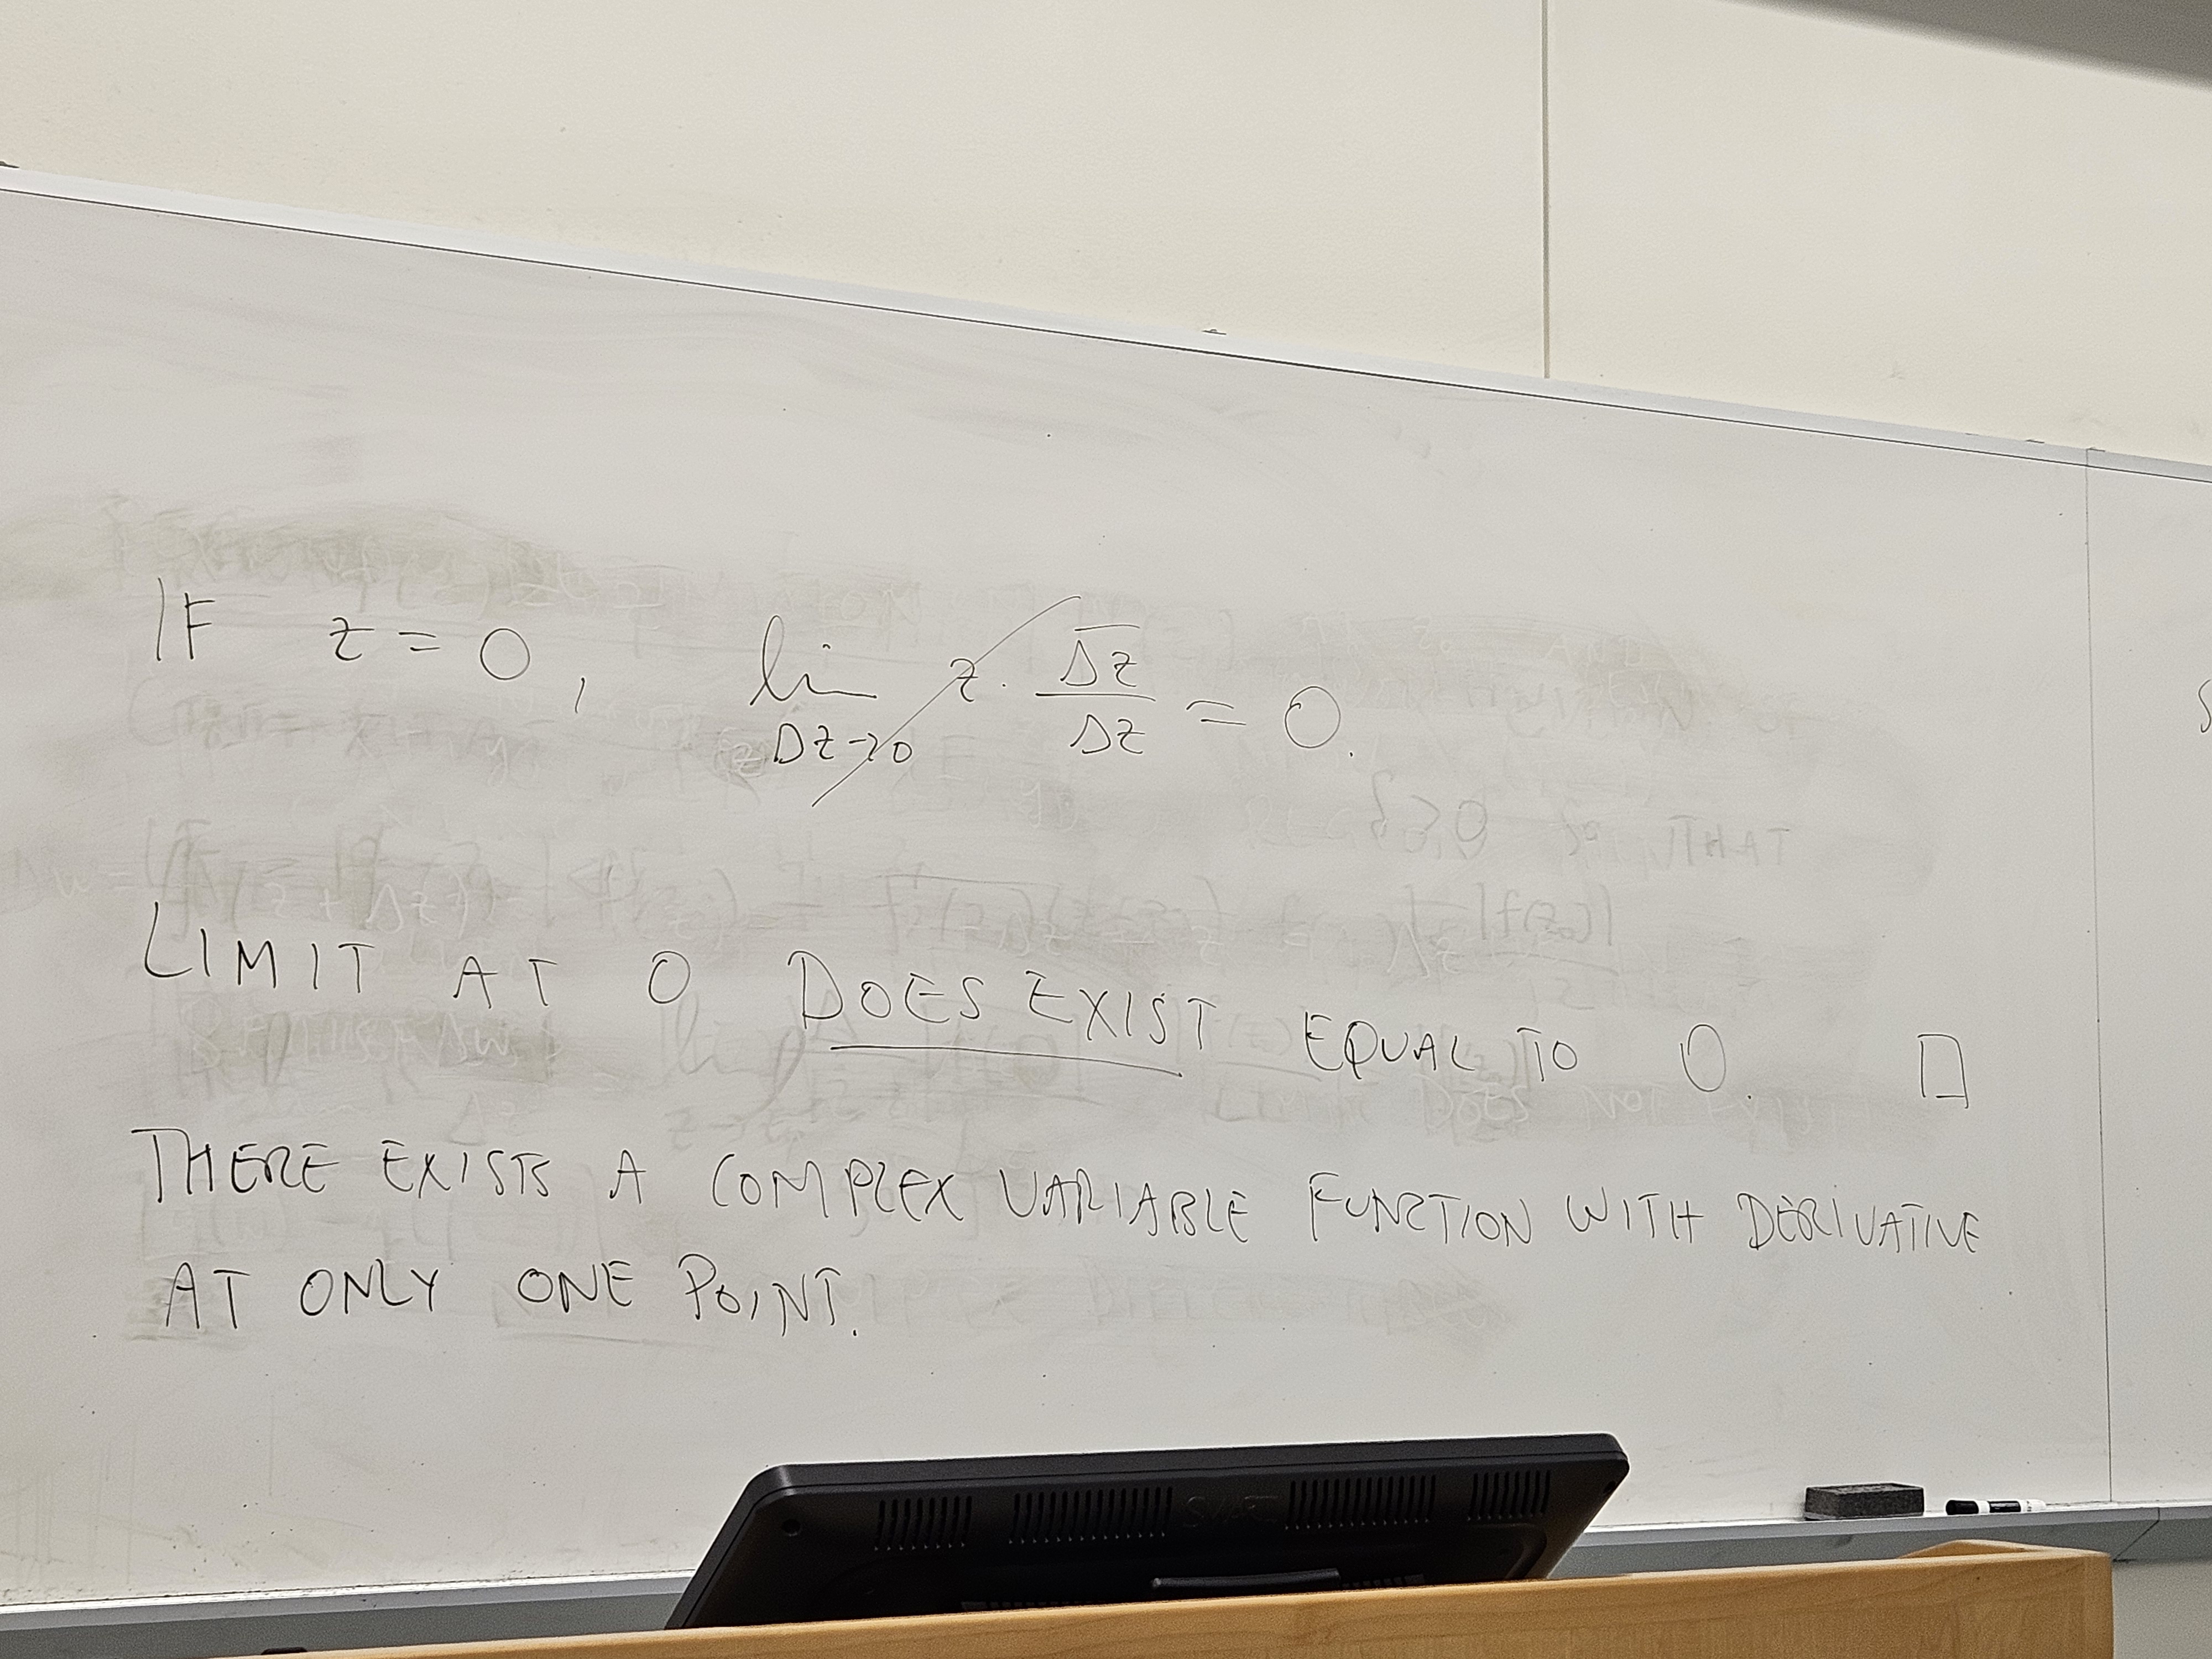 IF z = 0, lim Δz→0 z · \overline{Δz}/Δz = 0.
LIMIT AT 0 DOES EXIST EQUAL TO 0. □
THERE EXISTS A COMPLEX VARIABLE FUNCTION WITH DERIVATIVE
AT ONLY ONE POINT.